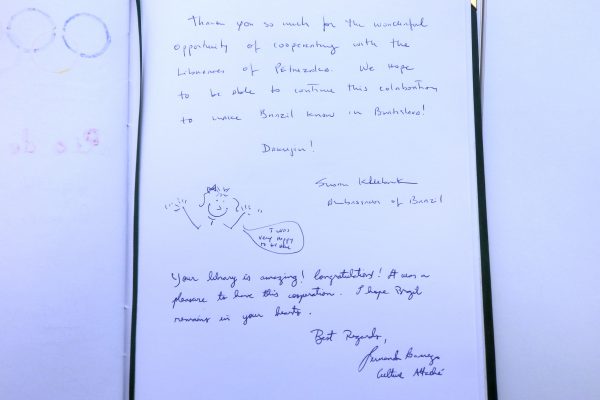 Thank you so much for the wonderful
opportunity of cooperating with the
Libraries of Petrzalka. We hope
to be able to continue this colaboration
to make Brazil know in Bratislava!
Susan Kleebank
Ambassador of Brazil
I was
very happy
to be here
Your library is amazing! Congratulations! It was a
pleasure to have this cooperation. I hope Brazil
remains in your hearts.
Best Regards,
Fernanda
Culture Attaché